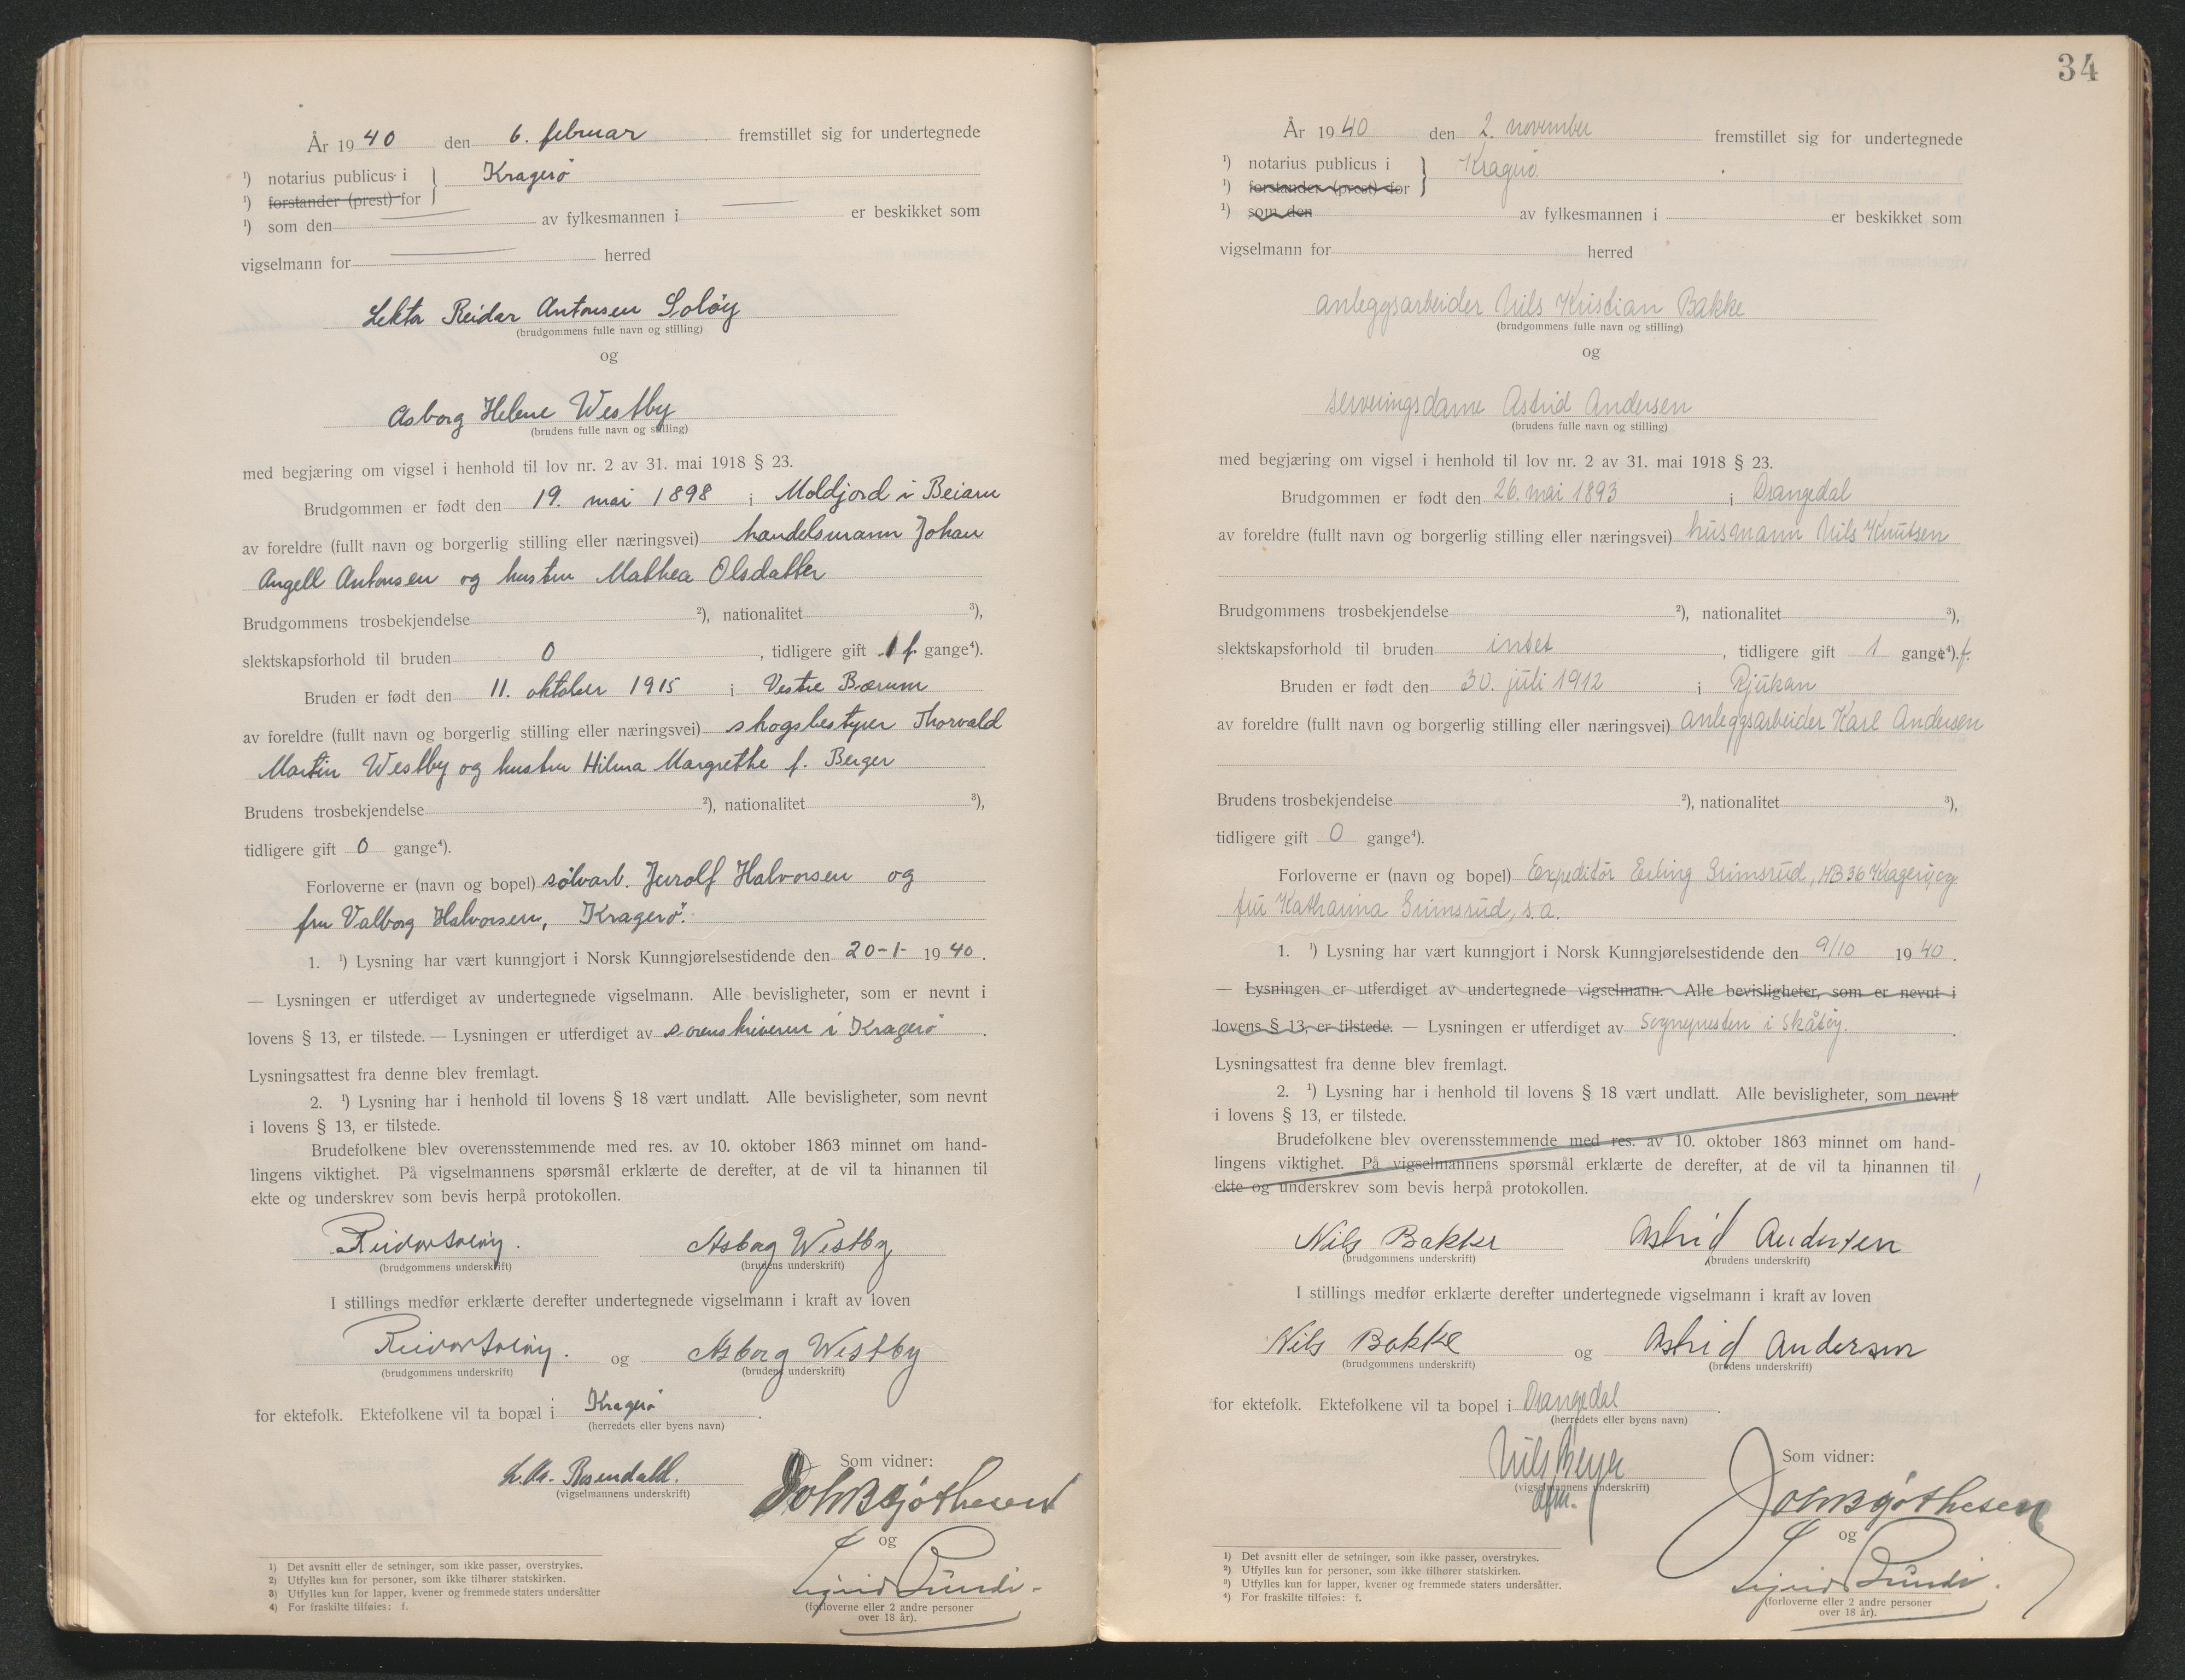 År 19 40 den 6. februar fremstillet sig for undertegnede
¹) notarius publicus i } Kragerø
¹) forstander (prest) for
¹) som den av fylkesmannen i er beskikket som
vigselmann for herred
Lektor Reidar Antonsen Soløy
(brudgommens fulle navn og stilling)
og
Asborg Helene Westby
(brudens fulle navn og stilling)
med begjæring om vigsel i henhold til lov nr. 2 av 31. mai 1918 § 23.
Brudgommen er født den 19. mai 1898 i Moldjord i Beiarn
av foreldre (fullt navn og borgerlig stilling eller næringsvei) handelsmann Johan
Angell Antonsen og hustru Mathea Olsdatter
Brudgommens trosbekjendelse ²), nationalitet ³),
slektskapsforhold til bruden 0, tidligere gift 1 f. gange⁴).
Bruden er født den 11. oktober 1915 i Vestre Bærum
av foreldre (fullt navn og borgerlig stilling eller næringsvei) skogsbestyrer Thorvald
Martin Westby og hustru Hilma Margrethe f. Berger
Brudens trosbekjendelse ²), nationalitet ³),
tidligere gift 0 gange⁴).
Forloverne er (navn og bopel) sølvarb. Halvorsen og
fru Valborg Halvorsen, Kragerø.
1. ¹) Lysning har vært kunngjort i Norsk Kunngjørelsestidende den 20-1- 19 40.
— Lysningen er utferdiget av undertegnede vigselmann. Alle bevisligheter, som er nevnt i
lovens § 13, er tilstede. — Lysningen er utferdiget av sorenskriveren i Kragerø.
Lysningsattest fra denne blev fremlagt.
2. ¹) Lysning har i henhold til lovens § 18 vært undlatt. Alle bevisligheter, som nevnt
i lovens § 13, er tilstede.
Brudefolkene blev overensstemmende med res. av 10. oktober 1863 minnet om hand-
lingens viktighet. På vigselmannens spørsmål erklærte de derefter, at de vil ta hinannen til
ekte og underskrev som bevis herpå protokollen.
Reidar Soløy. Asborg Westby
(brudgommens underskrift) (brudens underskrift)
I stillings medfør erklærte derefter undertegnede vigselmann i kraft av loven
Reidar Soløy. og Asborg Westby
(brudgommens underskrift) (brudens underskrift)
for ektefolk. Ektefolkene vil ta bopæl i Kragerø.
(herredets eller byens navn)
Rosendahl.
(vigselmannens underskrift)
Som vidner:
og
Sigrid
(forloverne eller 2 andre personer
over 18 år).
1) Det avsnitt eller de setninger, som ikke passer, overstrykes.
2) Utfylles kun for personer, som ikke tilhører statskirken.
3) Utfylles kun for lapper, kvener og fremmede staters undersåtter
4) For fraskilte tilføies: f.
34
År 19 40 den 2. november fremstillet sig for undertegnede
¹) notarius publicus i } Kragerø.
¹) forstander (prest) for
¹) som den av fylkesmannen i er beskikket som
vigselmann for herred
anleggsarbeider Nils Kristian Bakke
(brudgommens fulle navn og stilling)
og
serveringsdame Astrid Andersen
(brudens fulle navn og stilling)
med begjæring om vigsel i henhold til lov nr. 2 av 31. mai 1918 § 23.
Brudgommen er født den 26. mai 1893 i Drangedal
av foreldre (fullt navn og borgerlig stilling eller næringsvei) husmann Nils Knutsen
Brudgommens trosbekjendelse ²), nationalitet ³),
slektskapsforhold til bruden intet, tidligere gift 1 gange⁴). f.
Bruden er født den 30. juli 1912 i Rjukan
av foreldre (fullt navn og borgerlig stilling eller næringsvei) anleggsarbeider Karl Andersen
Brudens trosbekjendelse ²), nationalitet ³),
tidligere gift 0 gange⁴).
Forloverne er (navn og bopel) Expeditør Erling Grimsrud, HB 36 Kragerø, og
fru Katharina Grimsrud, s.a.
1. ¹) Lysning har vært kunngjort i Norsk Kunngjørelsestidende den 9/10 19 40.
— Lysningen er utferdiget av undertegnede vigselmann. Alle bevisligheter, som er nevnt i
lovens § 13, er tilstede. — Lysningen er utferdiget av Sognepresten i Skåtøy.
Lysningsattest fra denne blev fremlagt.
2. ¹) Lysning har i henhold til lovens § 18 vært undlatt. Alle bevisligheter, som nevnt
i lovens § 13, er tilstede.
Brudefolkene blev overensstemmende med res. av 10. oktober 1863 minnet om hand-
lingens viktighet. På vigselmannens spørsmål erklærte de derefter, at de vil ta hinannen til
ekte og underskrev som bevis herpå protokollen.
Nils Bakke Astrid Andersen
(brudgommens underskrift) (brudens underskrift)
I stillings medfør erklærte derefter undertegnede vigselmann i kraft av loven
Nils Bakke og Astrid Andersen
(brudgommens underskrift) (brudens underskrift)
for ektefolk. Ektefolkene vil ta bopel i Drangedal.
(herredets eller byens navn)
Nils
(vigselmannens underskrift)
Som vidner:
og
Sigrid
(forloverne eller 2 andre personer
over 18 år).
1) Det avsnitt eller de setninger, som ikke passer, overstrykes.
2) Utfylles kun for personer, som ikke tilhører statskirken.
3) Utfylles kun for lapper, kvener og fremmede staters undersåtter.
4) For fraskilte tilføies: f.